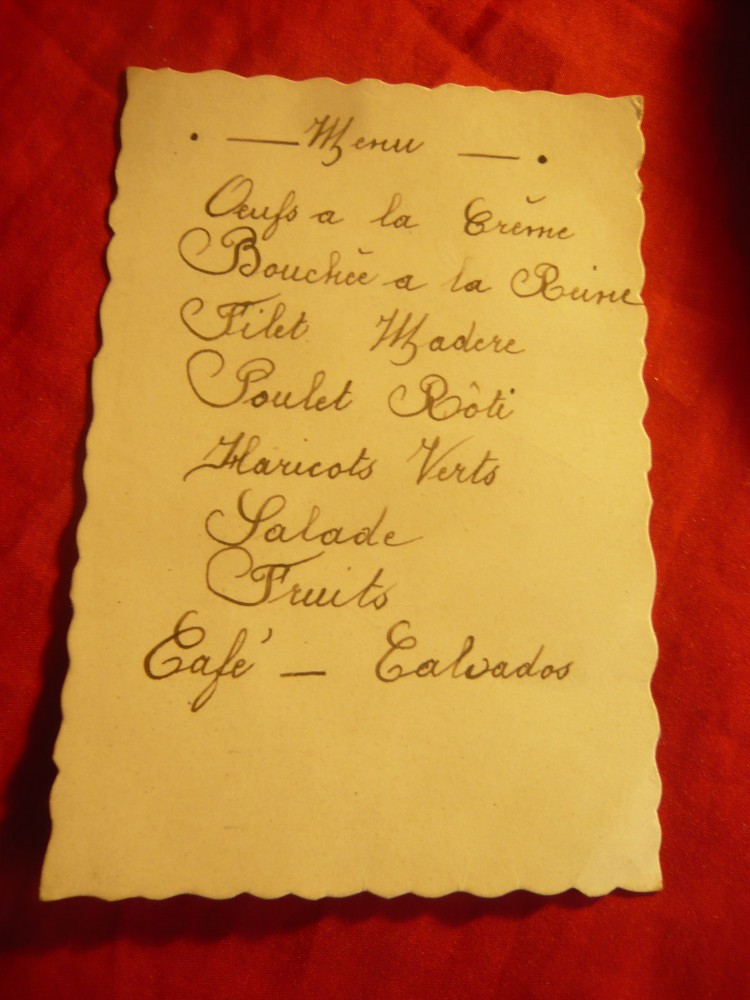 . — Menu — .
Oeufs a la Crême
Bouchée a la Reine
Filet Madere
Poulet Rôti
Haricots Verts
Salade
Fruits
Café — Calvados